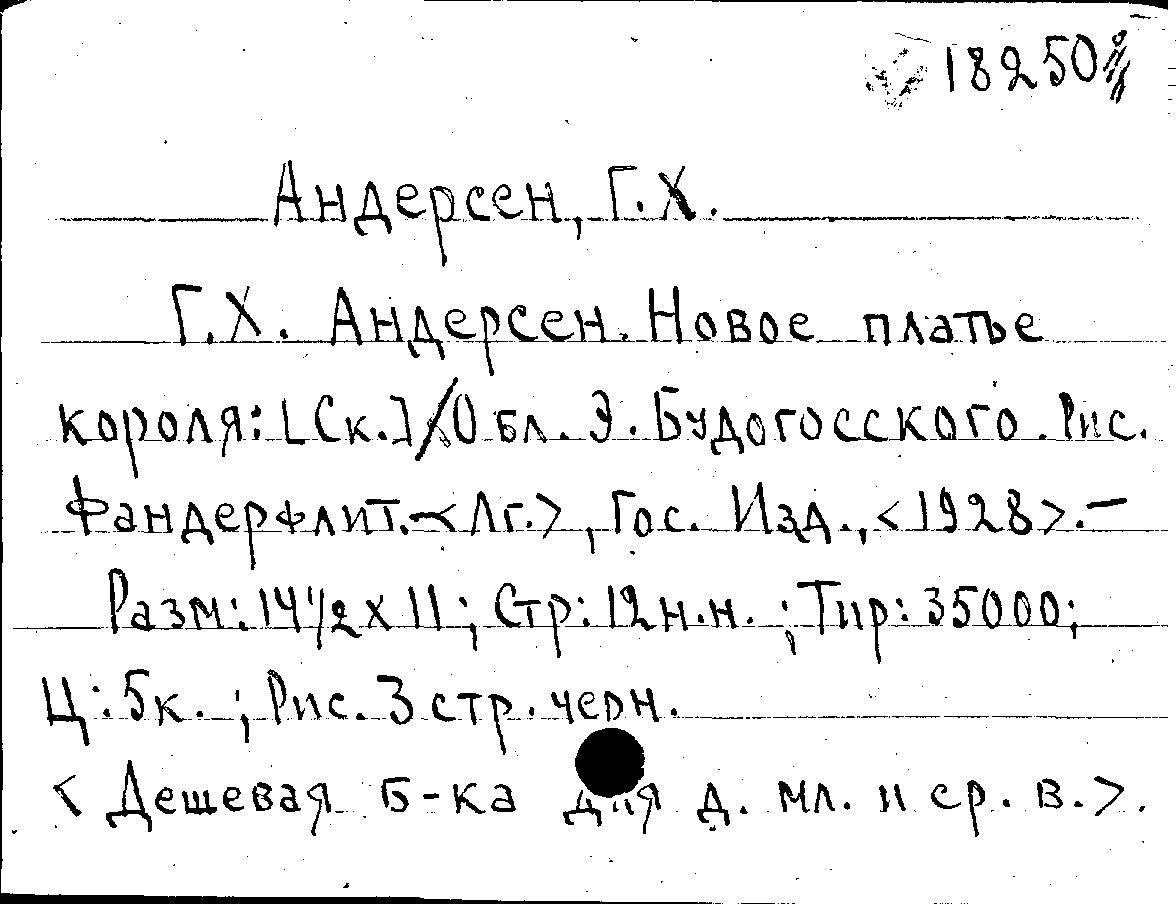 18250
Андерсен, Г.Х.
Г.Х. Андерсен. Новое платье
короля: [Ск.] / Обл. Э. Будогосского. Рис.
Фандерфлит. - <Лг.>, Гос. Изд., <1928>. -
Разм: 14 1/2 х 11; Стр: 12 н.н. ; Тир: 35000;
Ц: 5к. ; Рис. 3 стр. черн.
< Дешевая б-ка для д. мл. и ср. в.>.